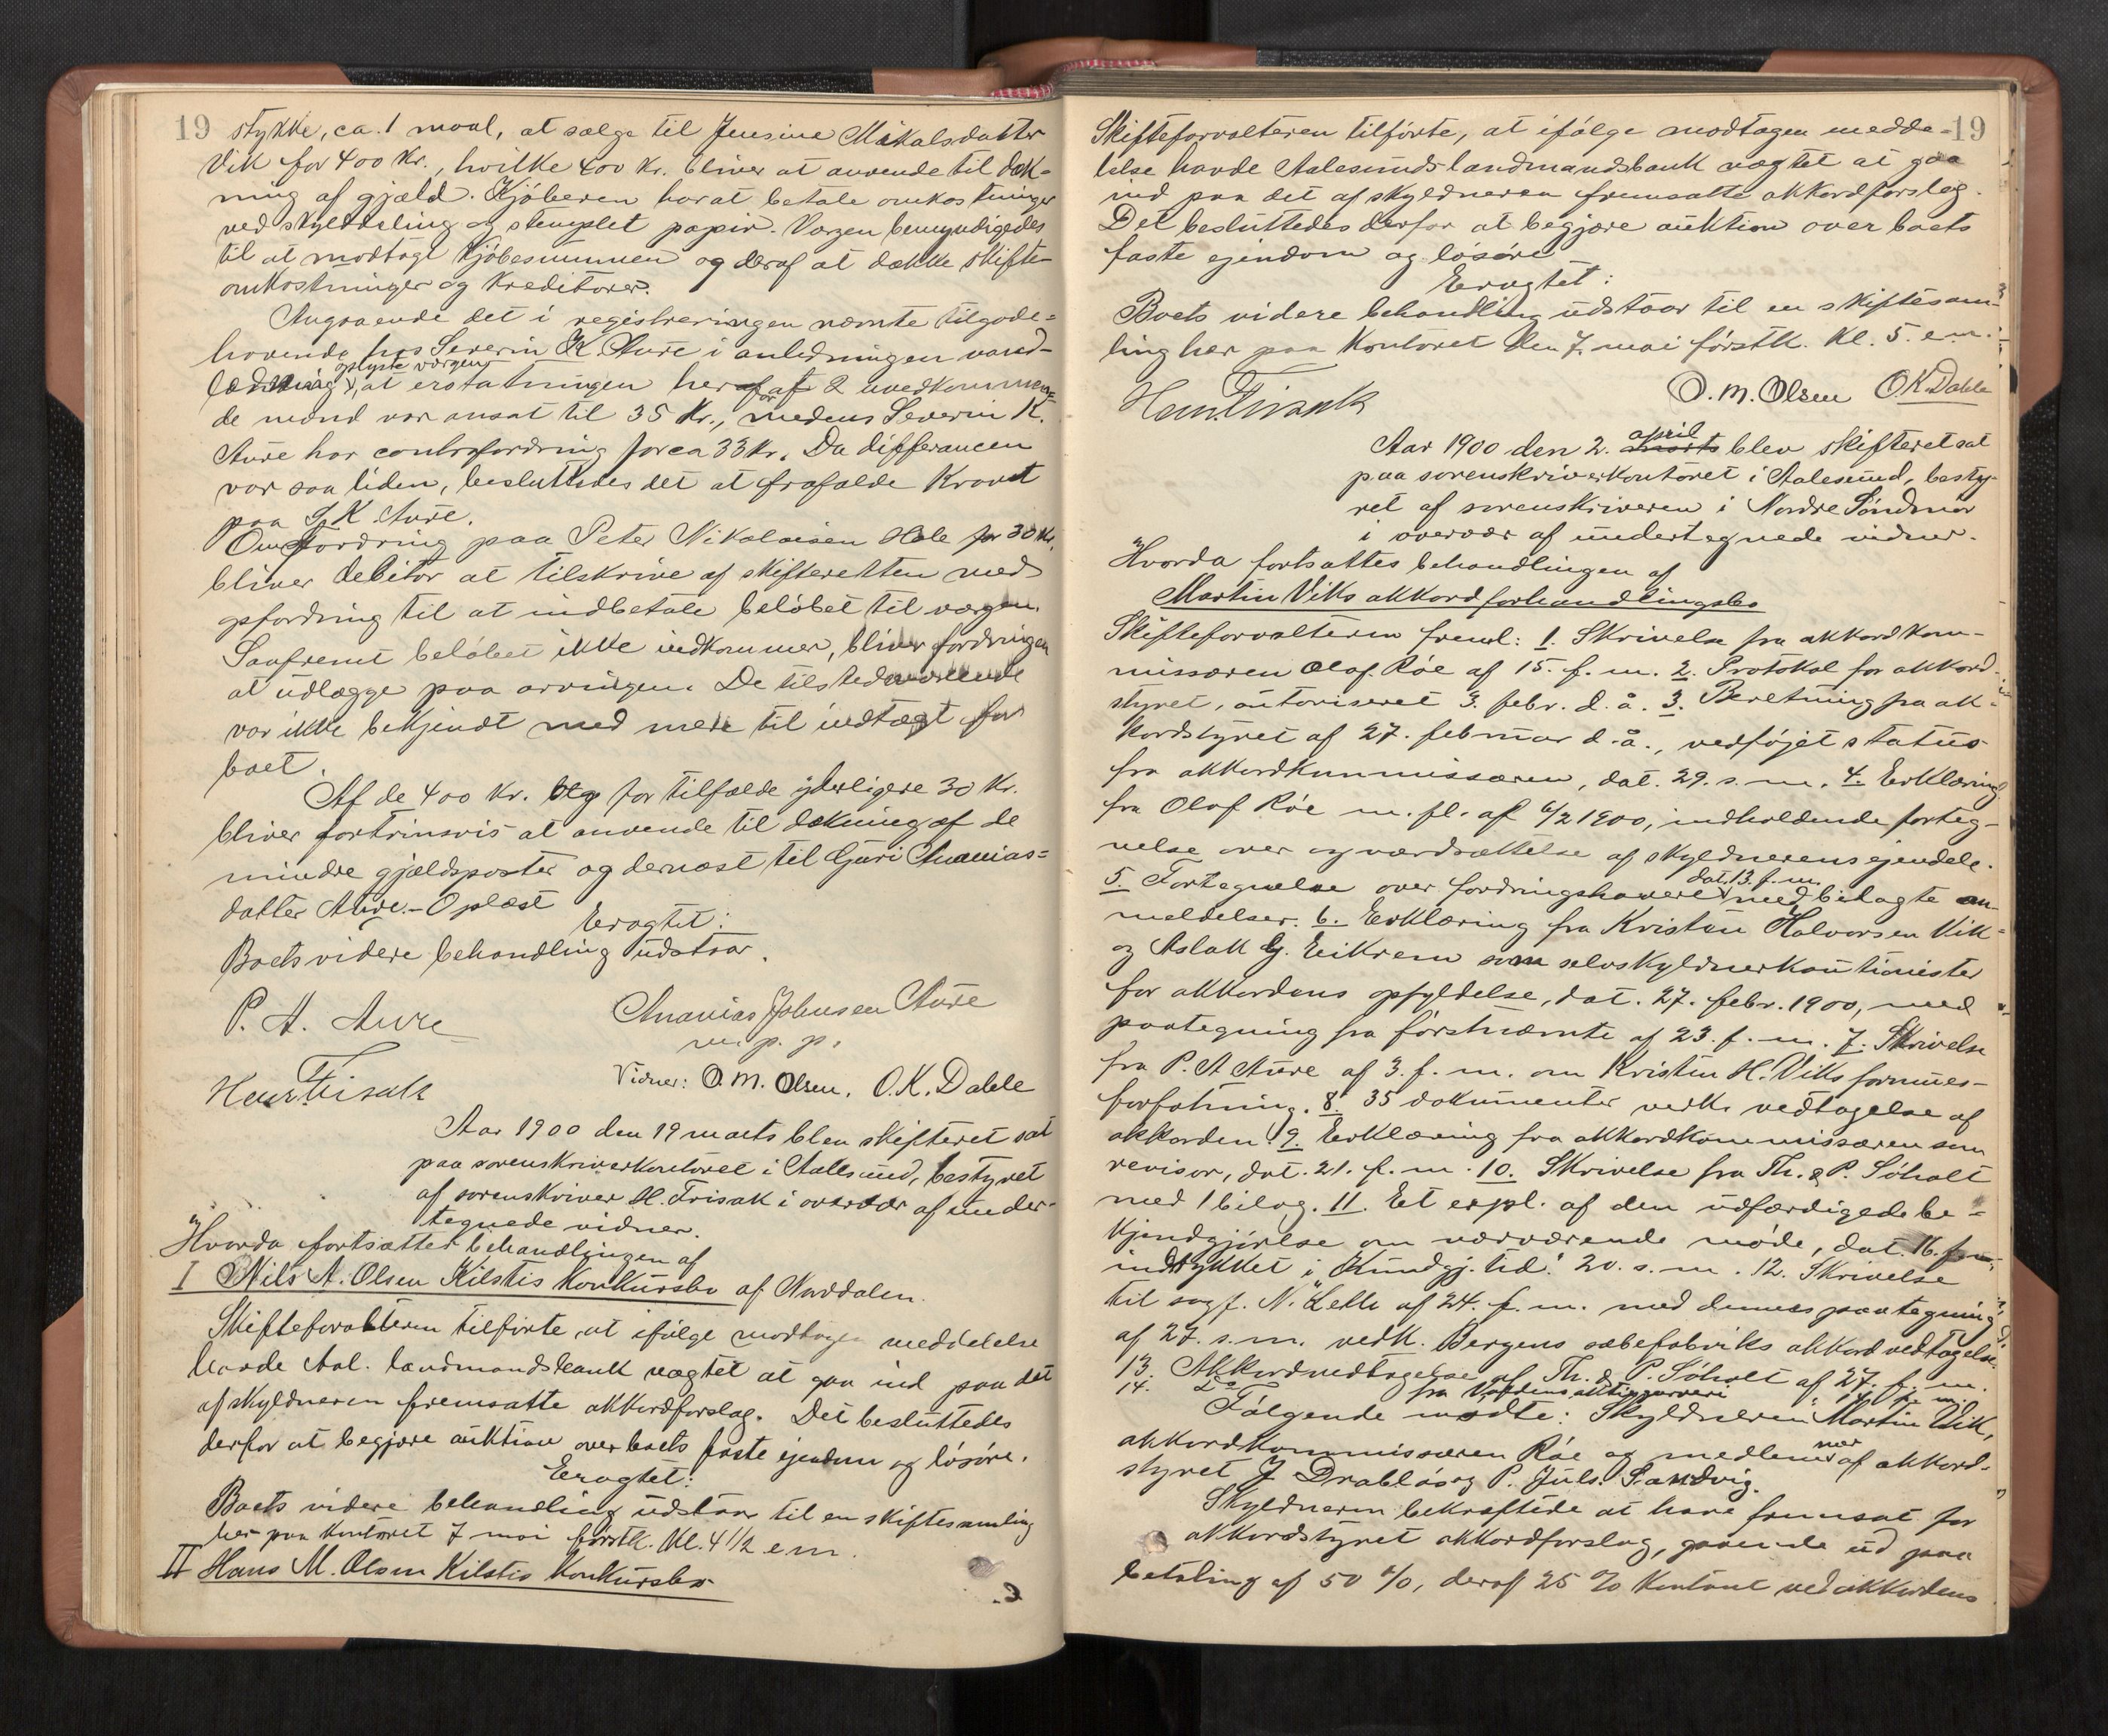 19 stykke, ca. 1 maal, at sælge til Jensine Mikalsdatter
Vik for 400 Kr., hvilke 400 Kr. bliver at anvende til dæk-
ning af gjæld. Kjøberen har at betale omkostninger
ved skylddeling og stemplet papir. Værgen bemyndigedes
til at modtage kjøbesummen og deraf at dække skifte-
omkostninger og kreditorer.
Angaaende det i registreringen nævnte tilgode-
havende hos Severin K. Aure i anledningen vand-
ledning, oplyste værgen, at erstatningen herfor af 2 uvedkommen-
de mænd var ansat til 35 Kr., medens Severin K.
Aure har contrafordring for ca 33 Kr. Da differancen
var saa liden, besluttedes det at frafalde Kravet
paa S. K. Aure.
Om fordring paa Peter Nikolaisen Hole for 30 Kr.
bliver debitor at tilskrive af skifteretten med
opfordring til at indbetale beløbet til værgen.
Saafremt beløbet ikke indkommer, bliver fordringen
at udlægge paa arvingen. De tilstedeværende
var ikke bekjendt med mere til indtægt for
boet.
Af de 400 Kr. og for tilfælde yderligere 30 Kr.
bliver fortrinsvis at anvende til dækning af de
mindre gjældsposter og dernæst til Guri Ananias=
datter Aure. – Oplæst
Eragtet:
Boets videre behandling udstaar.
P. A. Aure
Ananias Johnsen Aure
m. p. p.
Henr. Frisak
Vidner: O. M. Olsen. O. K. Dahle
Aar 1900 den 19 marts blev skifteret sat
paa sorenskriverkontoret i Aalesund, bestyret
af sorenskriver H. Frisak i overvær af under-
tegnede vidner.
Hvorda fortsattes behandlingen af
I Nils A. Olsen Kilstis Konkursbo af Norddalen.
Skifteforvalteren tilførte, at ifølge modtagen meddelelse
havde Aal. landmandsbank nægtet at gaa ind paa det
af skyldneren fremsatte akkordforslag. Det besluttedes
derfor at begjære auktion over boets faste ejendom og løsøre.
Eragtet:
Boets videre behandling udstaar til en skiftesamling
her paa Kontoret 7 mai førstk. Kl. 4 1/2 e m.
II Hans M. Olsen Kilstis Konkursbo
Skifteforvalteren tilførte, at ifølge modtagen medde- 19
lelse havde Aalesunds landmandsbank nægtet at gaa
ind paa det af skyldneren fremsatte akkordforslag.
Det besluttedes derfor at begjære auktion over boets
faste ejendom og løsøre
Eragtet:
Boets videre behandling udstaar til en skiftesam-
ling her paa Kontoret den 7. mai førstk. Kl. 5. e.m.
Henr. Frisak
O. M. Olsen O K Dahle
Aar 1900 den 2. marts april blev skifteret sat
paa sorenskriverkontoret i Aalesund, besty-
ret af sorenskriveren i Nordre Søndmør
i overvær af undertegnede vidner.
Hvorda fortsattes behandlingen af
Martin Viks akkordforhandlingsbo
Skifteforvalteren freml: 1. Skrivelse fra akkordkom-
missæren Olaf Røe af 15. f. m. 2. Protokol for akkord-
styret, autoriseret 3. febr. d. å. 3. Beretning fra ak-
kordstyret af 27. februar d. å., vedføjet status
fra akkordkommissæren, dat. 29. s. m. 4. Erklæring
fra Olaf Røe m. fl. af 6/2 1900, indholdende forteg-
nelse over og værdsættelse af skyldnerens ejendele.
5. Fortegnelse over fordringshavere dat. 13. f. m. med bilagte an-
meldelser. 6. Erklæring fra Kristen Halvorsen Vik
og Aslak G. Eikrem som selvskyldnerkautionister
for akkordens opfyldelse, dat. 27. febr. 1900, med
paategning fra førstnævnte af 23. f. m. 7. Skrivelse
fra P. A Aure af 3. f. m. om Kristen H. Viks formues-
forfatning. 8. 35 dokumenter vedk. vedtagelse af
akkorden. 9. Erklæring fra akkordkommissæren som
revisor, dat. 21. f. m. 10. Skrivelse fra Th. & P. Søholt
med 1 bilag. 11. Et expl. af den udfærdigede be-
kjendgjørelse om nærværende møde, dat. 16. f. m.
indrykket i „Kundgj. tid." 20. s. m. 12. Skrivelse
til sagf. N. Lelle af 24. f. m. med dennes paategning
af 27. s. m. vedk. Bergens sæbefabriks akkordvedtagelse.
13. Akkordvedtagelse af Th. & P. Søholt af 27. f. m.
14. Do fra
Følgende mødte: Skyldneren Martin Vik,
akkordkommissæren Røe og medlemmer af akkord-
styret J Drabløs og P. Juls. Sandvig.
Skyldneren bekræftede at have fremsat for
akkordstyret akkordforslag, gaaende ud paa
betaling af 50 %, deraf 25 % kontant ved akkordens